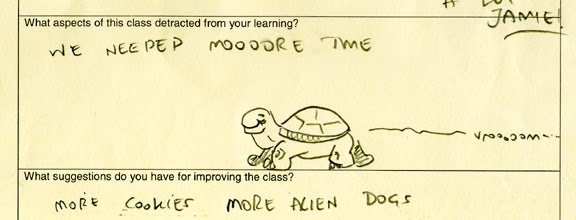 A LOT
JAMIE!
What aspects of this class detracted from your learning?
WE NEEDED MOOOORE TIME
vroooom---
What suggestions do you have for improving the class?
MORE COOKIES MORE ALIEN DOGS